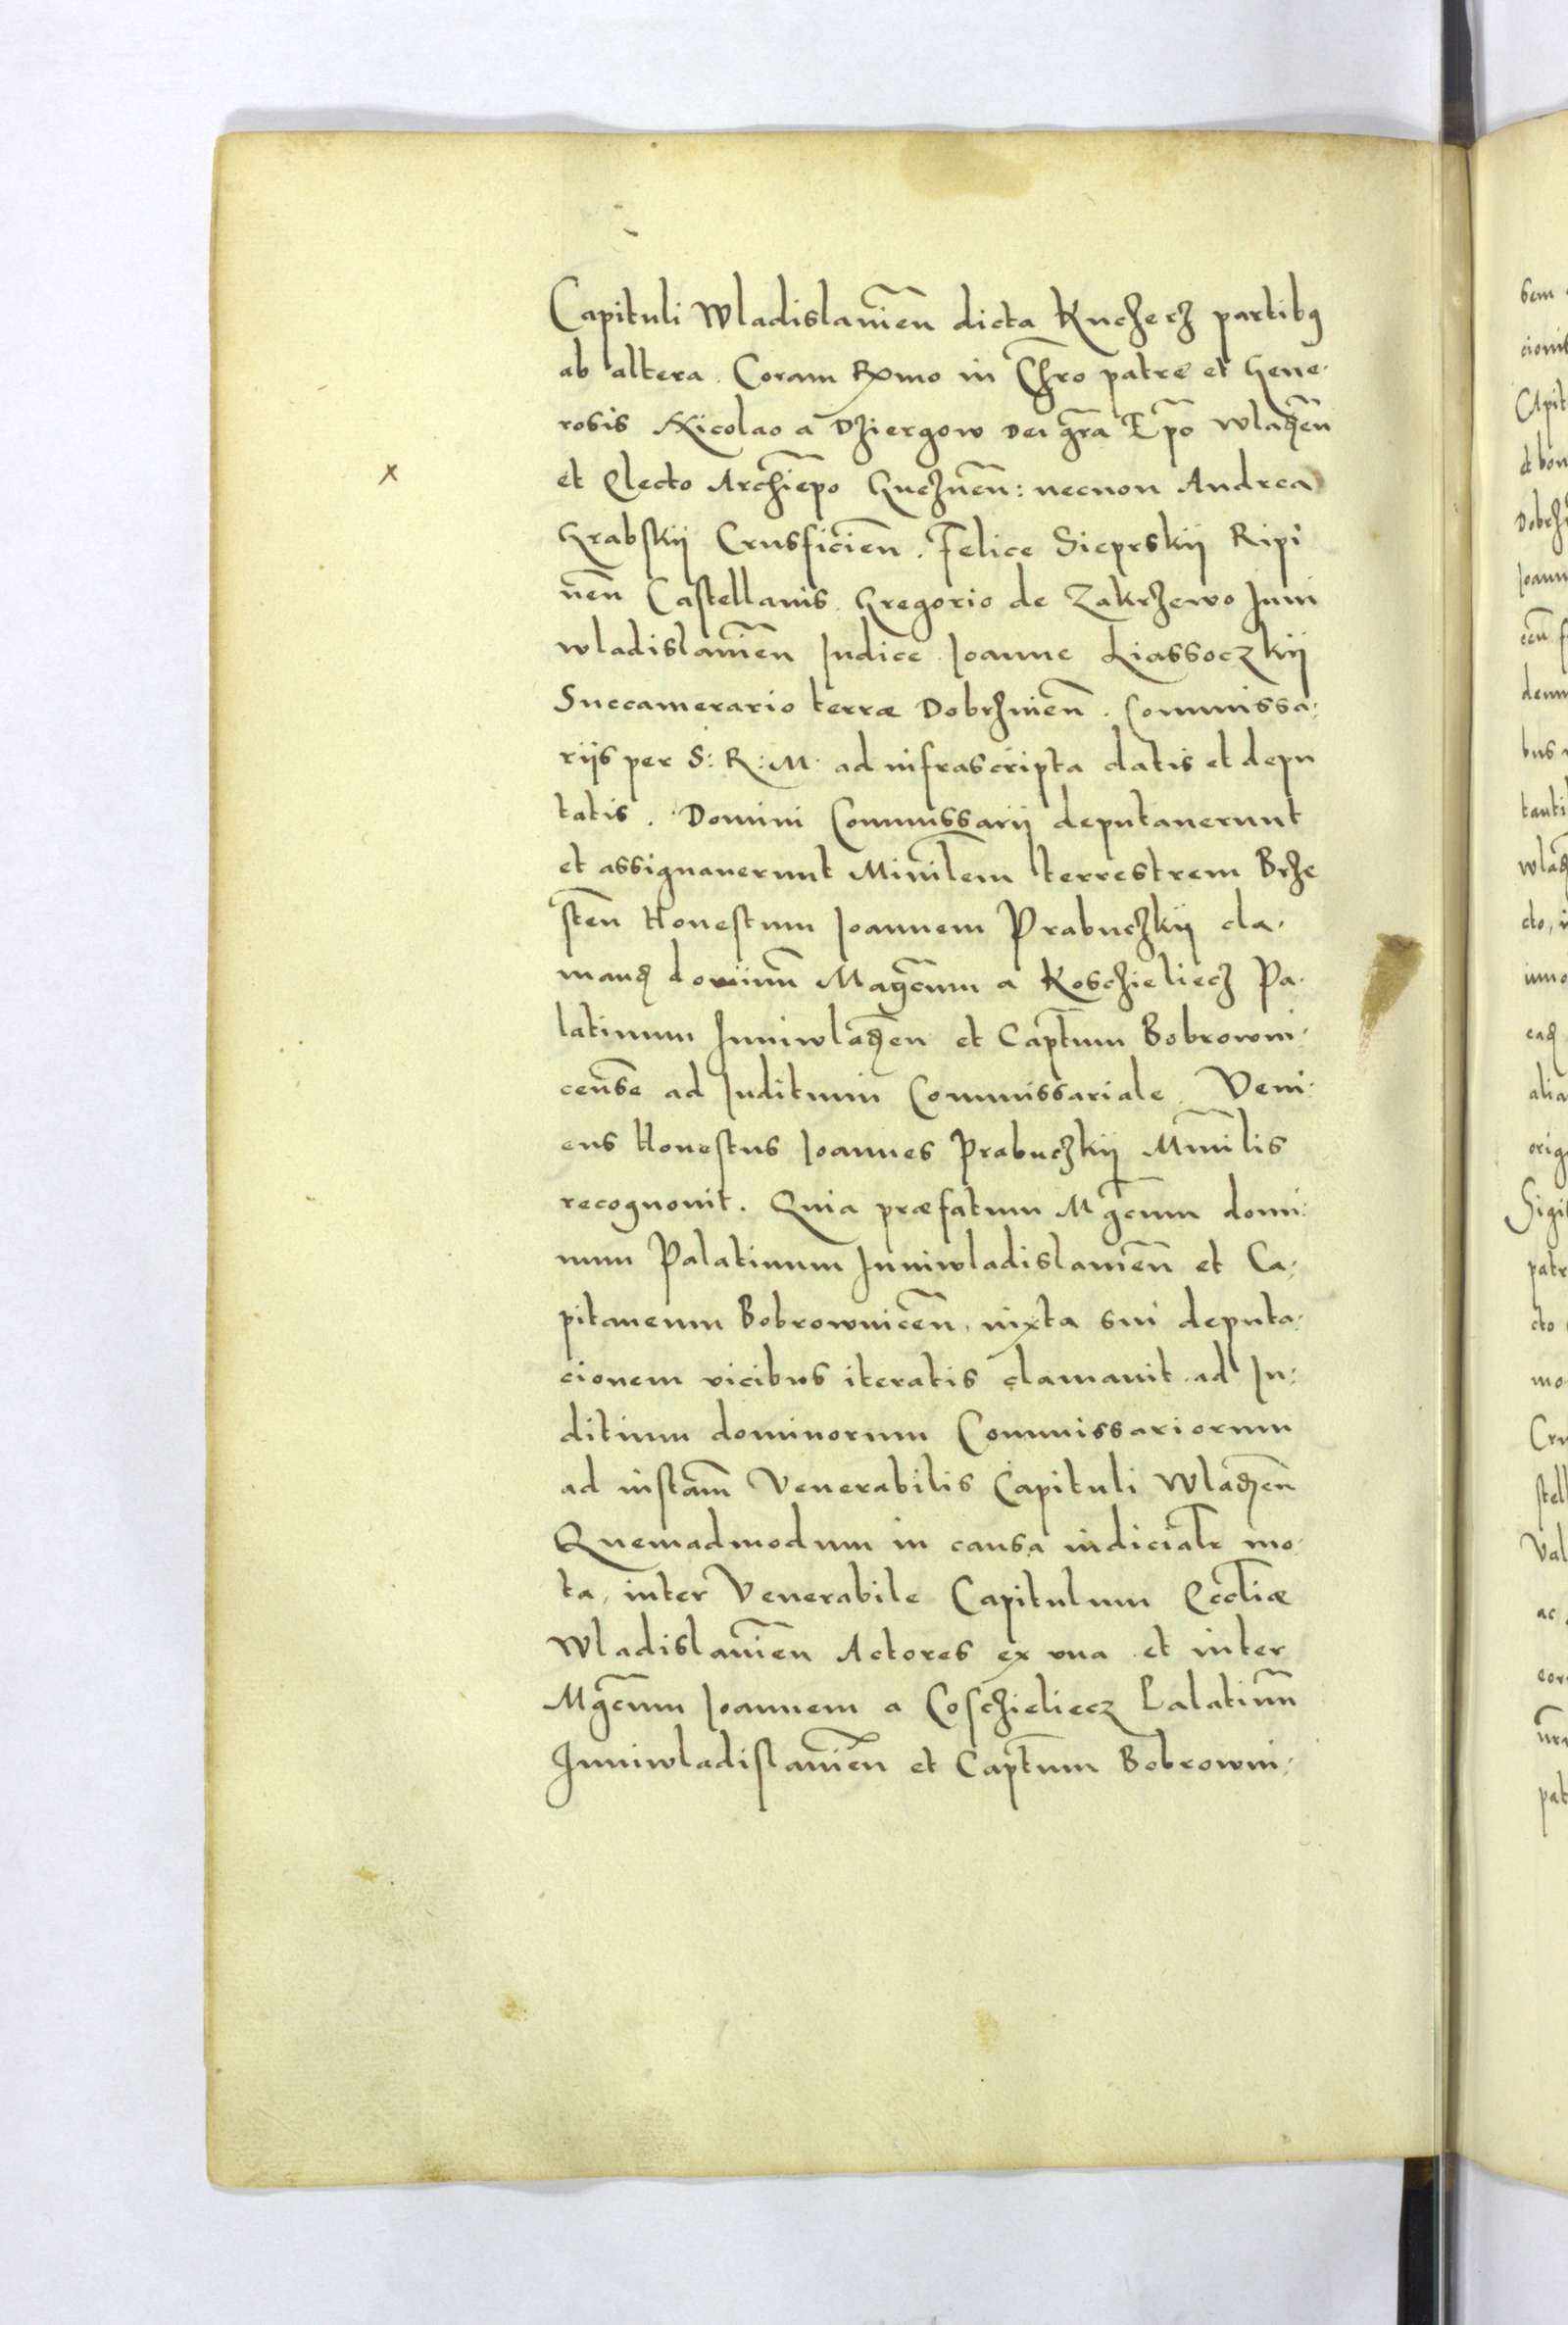 Capituli Wladislauień dicta Kuchecz partibꝫ
ab altera. Coram Rx̃mo in Chr̃o patre et Gene-
rosis Nicolao a Dziergow Dei grã Ep̃o Wladień
et Electo Archiepõ Gneznen̄: necnon Andrea
x
Grabskij Crusficien̄. Felice Sieprskij Ripi
nen̄ Castellanis. Gregorio de Zakrzewo Juni
wladislauien̄ Judice Joanne Liassoczkij
Succamerario terræ Dobrzinen̄. Commissa-
rijs per S: R: M. ad infrascripta datis et depu
tatis. Domini Commissarij deputauerunt
et assignauerunt Minil̃em terrestrem Brze
sten̄ Honestum Joannem Prabuczkij cla-
mandꝫ dominũ Magc̃um a Koschieliecz Pa-
latinum Juniwladꝫen̄ et Cap̃tum Bobrowni-
censẽ ad Juditium Commissariale. Veni-
ens Honestus Joannes Prabuczkij Mini̇̃lis
recognouit. Quia præfatum Mgc̃um domi-
num Palatinum Juniwladislauien̄ et Ca-
pitaneum Bobrownicen̄, iuxta sui deputa-
cionem vicibus iteratis clamauit ad Ju-
ditium dominorum Commissariorum
ad instam̃ Venerabilis Capituli Wladꝫen̄
Quemadmodum in causa iudiciale mo-
ta, inter Venerabile Capitulum Eccl̃iæ
Wladislauien̄ Actores ex vna et inter
Mgc̃um Joannem a Coschieliecz Palatinũ
Juniwladislauien̄ et Cap̃tum Bobrowni-